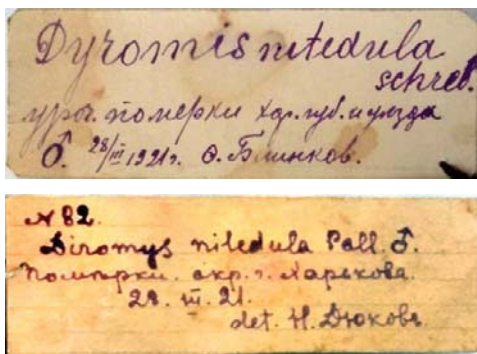 Dyromis nitedula
schreb.
уроч. померки хар. губ. и уезда
♂. 28/III 1921 г. Ѳ. Блинков.
№ 82.
Diromys nitedula Pall ♂.
Помперки. окр. г. Харькова.
28. III. 21.
det. Н. Дюкова